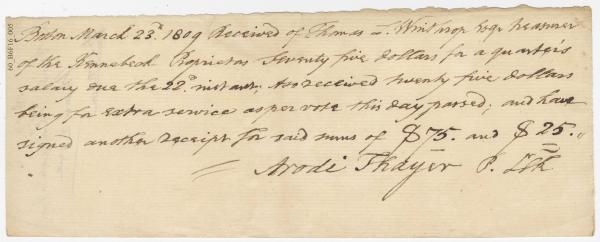 Boston March 23d. 1809 Received of Thomas L. Winthrop Esqr. treasurer
of the Kennebeck Proprietors Seventy five dollars for a quarter's
salary due the 22d. instant; Also received twenty five dollars
being for extra service as per vote this day passed; and have
signed another receipt for said sums of $75. and $25.
Arodi Thayer P. Clk
60_B6F16_005